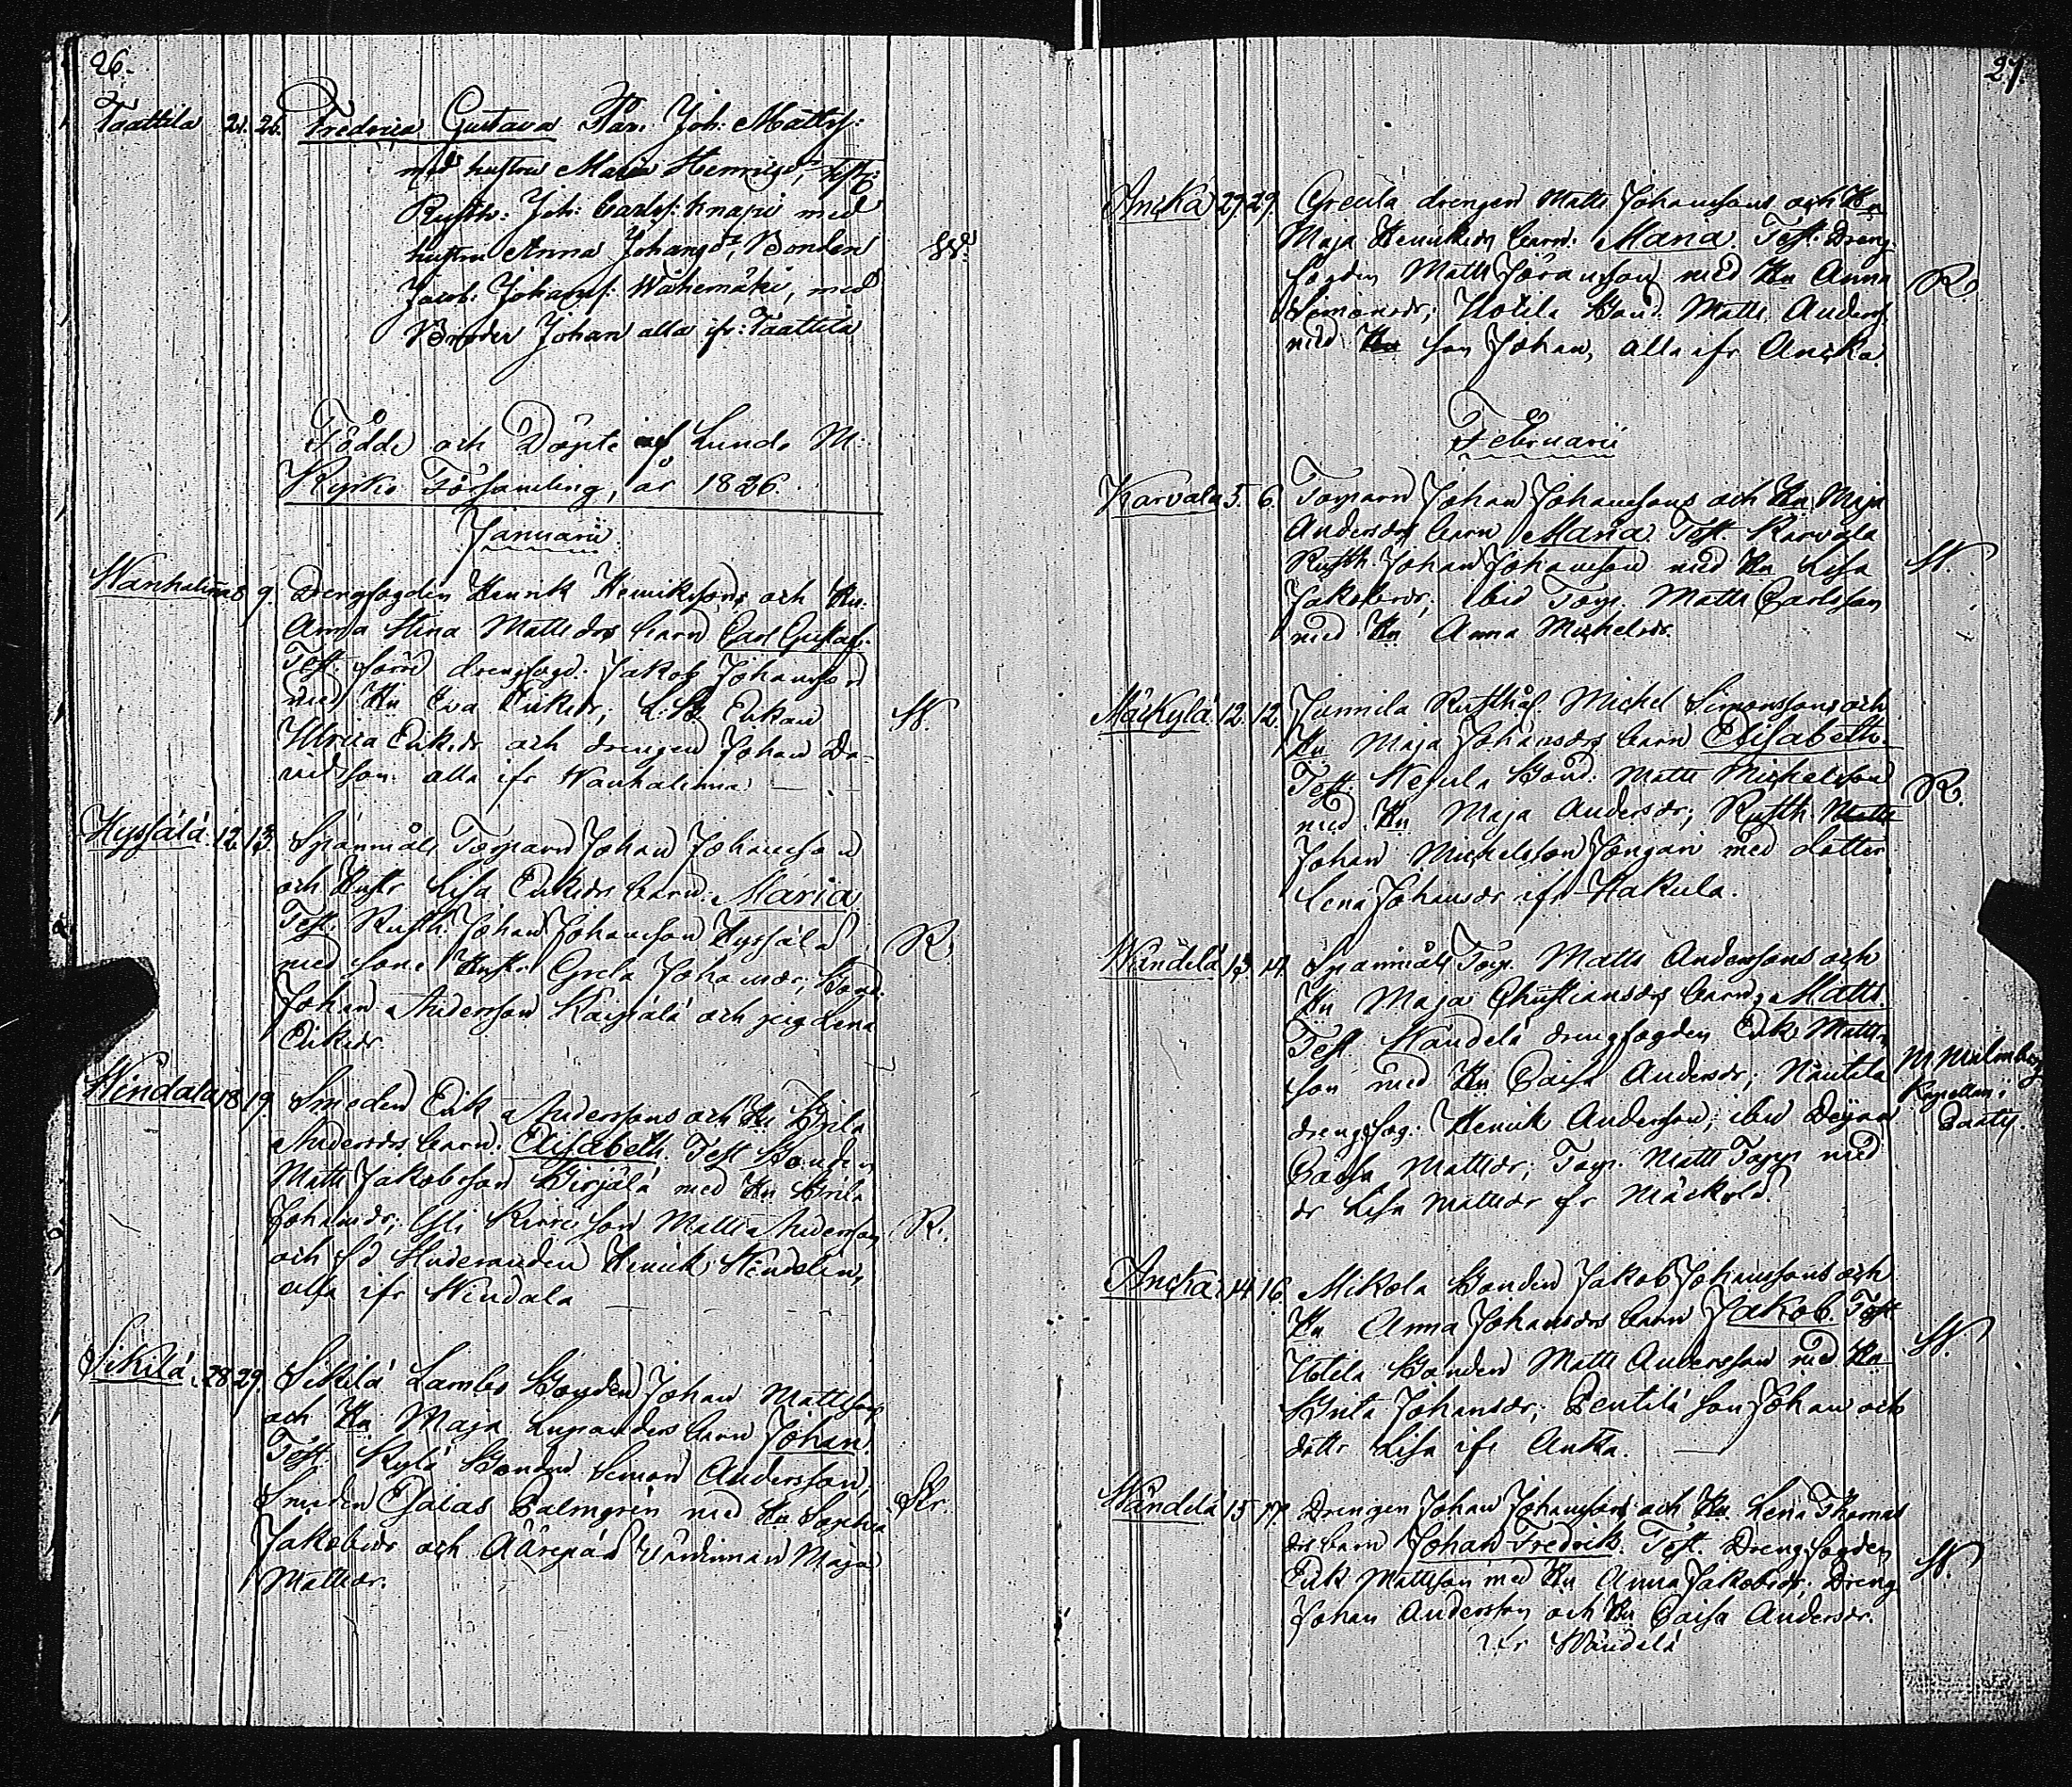 26.
Taattila 21. 26. Fredrica Gustava Får. Joh: Mattss:
med hustru Maria Henricsd:r, Test:
Rusth: Joh: Carlss: Knapi med
hustru Anna Johansd:r, Bonden
Jacob: Johanss: Wähemäki, med
Broder Johan alla ifr: Taattila
Födde och Döpte af Lundo M:
Kyrko Församling, år 1826.
Januarii
Wanhalinna 8 9. Drengfogden Henrik Henrikssons och Hu:
Anna Stina Mattsdrs barn Carl Gustaf:
Test. förre drengfogd: Jakob Johansson
med Hu Eva Eriksdr; Enkan
Ulrica Eriksdr och drengen Johan Da-
vidsson alla ifr Wanhalinna.
W.
Hyssälä 12. 13. Spanmåls Torparn Johan Johansson
och Hustr Lisa Eriksdrs barn Maria
Test. Rusth. Johan Johansson Hyssälä
med sons Hustr. Greta Johansdr; Bond.
Johan Andersson Kaipiälä och pig Lena
Eriksdr.
R.
Windala 18 19 Smeden Erik Anderssons och Hu Brita
Andersdrs barn. Elisabeth. Test Bonden
Matts Jakobsson Birjälä med Hu Brita
Johansdr; son Matts Andersson
och Studeranden Henrik
alla ifr Windala
R.
Sikilä. 28 29. Sikilä Lambo Bonden Johan Mattsson
och Hu Maja barn Johan.
Test. Kylä Bonden Simon Andersson,
Smeden Esaias Palmgrén med Hu Sophia
Jakobsdr och Äärepää värdinnan Maja
Mattsdr.
27.
Ancka 27. 29. Greula drengen Matts Johanssons och Hu
Maja Henriksdrs barn: Maria. Test: Dreng-
fogden Matts Göransson med Hu Anna
Simonsdr; Uotila Bond. Matts Anderss.
med son Johan, alla ifr Ancka.
R.
Februarii
Karvala 5. 6. Torparn Johan Johanssons och Hu Maja
Andersdrs barn Maria. Test. Karvala
Rusth. Johan Johansson med Hu Lisa
Jakobsdr; ibid Torp. Matts Carlsson
med Hu Anna Michelsdr.
W.
Mäckylä. 12. 12. Junnila Rusthåll Michel Simonssons och
Hu Maja Johansdrs barn Elisabeth.
Test. Bond. Matts Michelsson
med Hu Maja Andersdr; Rusth. Matts
Johan Michelsson med dotter
Lena Johansdr ifr Hakula.
R.
Wändelä 13. 14. Spanmåls Torp. Matts Anderssons och
Hu Maja Christiansdrs barn; Matts.
Test. Wändelä drengfogden Erik Matts-
son med Hu Caisa Andersdr; Nautela
drengfog: Henrik Andersson; ibid Dejan
Caisa Mattsdr; Torp. Matts med
dr Lisa Mattsdr fr Mäckylä.
M Malmberg
Kapellan i
Ancka. 14. 16. Mikola Bonden Jakob Johanssons och
Hu Anna Johansdrs barn Jakob. Test
Uotila Bonden Matts Andersson med Hu
Brita Johansdr; Pentilä son Johan och
dottr Lisa ifr Ancka.
W.
Wändelä 15 17. Drengen Johan Johanssons och Hu. Lena Thomas
drs barn Johan Fredrik. Test. Drengfogden
Erik Mattsson med Hu Anna Jakobsdr; Dreng
Johan Andersson och Hu Caisa Andersdr.
ifr Wändelä
W.